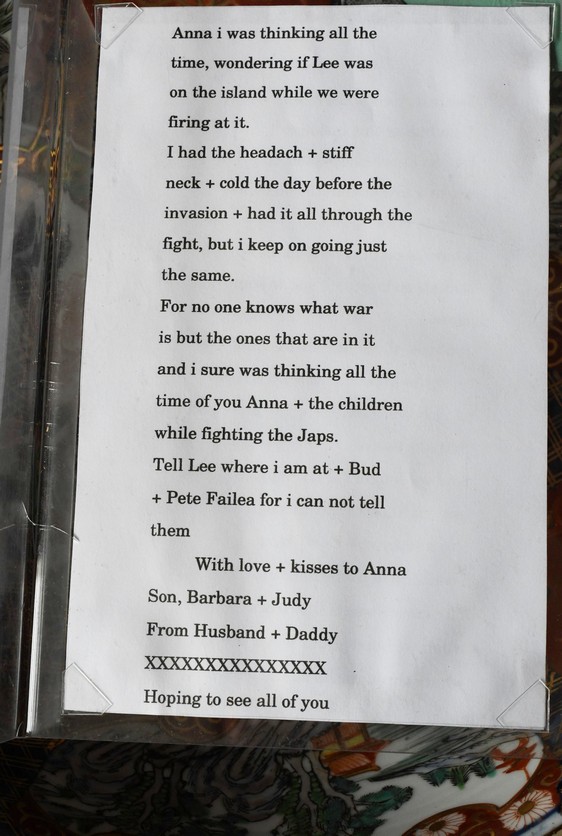 Anna i was thinking all the
time, wondering if Lee was
on the island while we were
firing at it.
I had the headach + stiff
neck + cold the day before the
invasion + had it all through the
fight, but i keep on going just
the same.
For no one knows what war
is but the ones that are in it
and i sure was thinking all the
time of you Anna + the children
while fighting the Japs.
Tell Lee where i am at + Bud
+ Pete Failea for i can not tell
them
With love + kisses to Anna
Son, Barbara + Judy
From Husband + Daddy
XXXXXXXXXXXXXXX
Hoping to see all of you